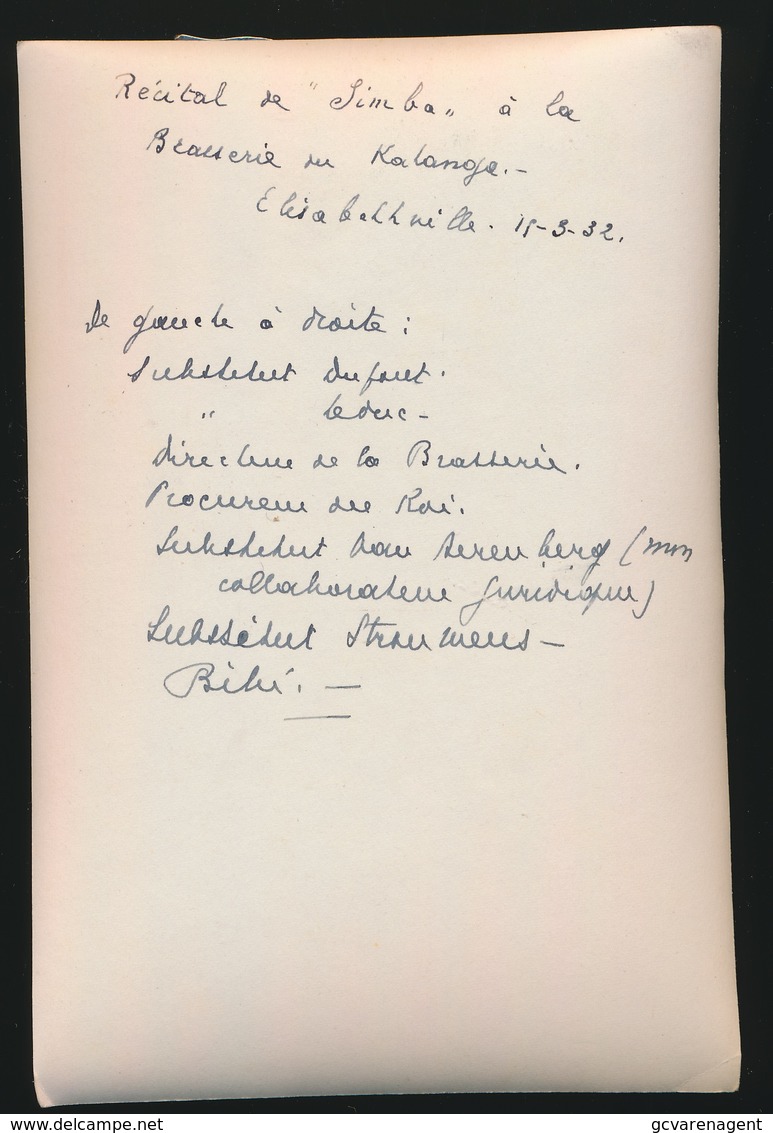 Récital de "Simba" à la
Brasserie du Katanga.-
Elisabethville. 15-3-32.
de gauche à droite :
Substitut Dufour.
" Leduc -
Directeur de la Brasserie.
Procureur du Roi.
Substitut Van Arenberg (mon
collaborateur juridique)
Substitut Strouwens -
Bibi. -
www.delcampe.net
gcvarenagent